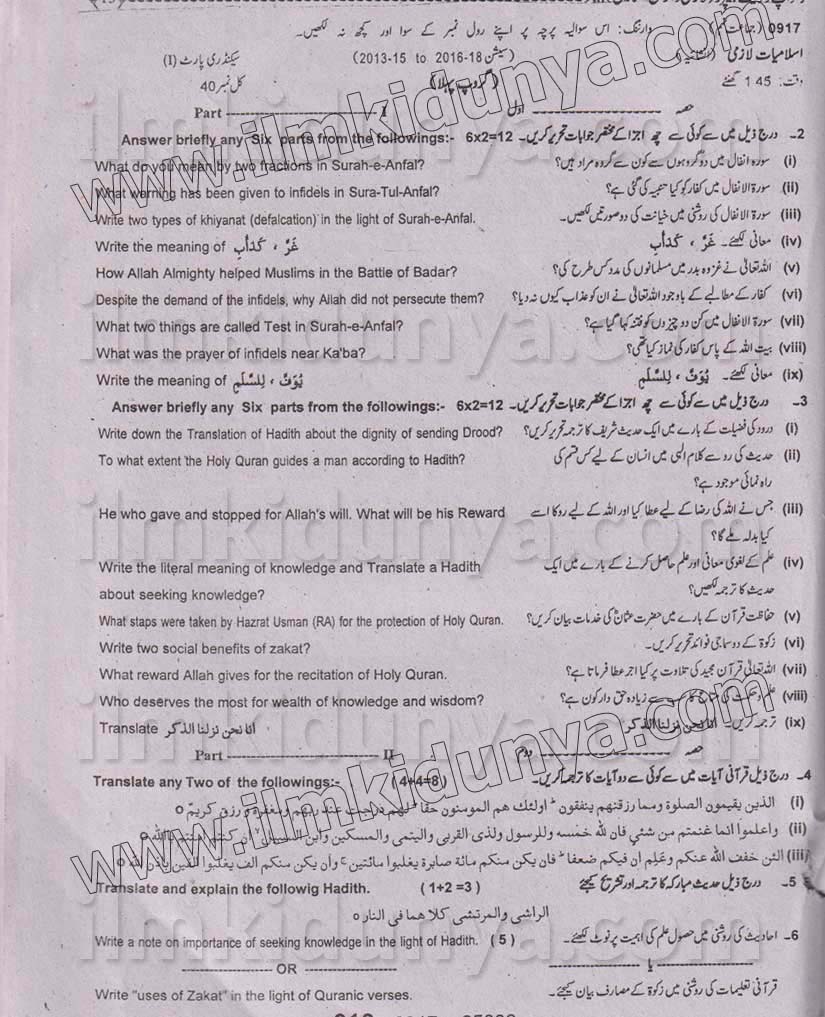 0917 (جماعت نہم) وارننگ: اس سوالیہ پرچہ پر اپنے رول نمبر کے سوا اور کچھ نہ لکھیں۔
اسلامیات لازمی (انشائیہ) (سیشن 2013-15 to 2016-18) سیکنڈری پارٹ (I)
وقت: 1.45 گھنٹے (گروپ پہلا) کل نمبر 40
Part ---------- I حصہ ---------- اول
Answer briefly any Six parts from the followings:- 6x2=12 2- درج ذیل میں سے کوئی سے چھ اجزا کے مختصر جوابات تحریر کریں۔
What do you mean by two fractions in Surah-e-Anfal? (i) سورہ انفال میں دو گروہوں سے کون سے گروہ مراد ہیں؟
What warning has been given to infidels in Sura-Tul-Anfal? (ii) سورۃ الانفال میں کفار کو کیا تنبیہ کی گئی ہے؟
Write two types of khiyanat (defalcation) in the light of Surah-e-Anfal. (iii) سورۃ الانفال کی روشنی میں خیانت کی دو صورتیں لکھیں۔
Write the meaning of غَرَّ ، كَدَأبِ (iv) معانی لکھئے۔ غَرَّ ، كَدَأبِ
How Allah Almighty helped Muslims in the Battle of Badar? (v) اللہ تعالیٰ نے غزوہ بدر میں مسلمانوں کی مدد کس طرح کی؟
Despite the demand of the infidels, why Allah did not persecute them? (vi) کفار کے مطالبے کے باوجود اللہ تعالیٰ نے ان کو عذاب کیوں نہ دیا؟
What two things are called Test in Surah-e-Anfal? (vii) سورۃ الانفال میں کن دو چیزوں کو فتنہ کہا گیا ہے؟
What was the prayer of infidels near Ka'ba? (viii) بیت اللہ کے پاس کفار کی نماز کیا تھی؟
Write the meaning of يُوَفَّ ، لِلسَّلْمِ (ix) معانی لکھئے۔ يُوَفَّ ، لِلسَّلْمِ
Answer briefly any Six parts from the followings:- 6x2=12 3- درج ذیل میں سے کوئی سے چھ اجزا کے مختصر جوابات تحریر کریں۔
Write down the Translation of Hadith about the dignity of sending Drood? (i) درود کی فضیلت کے بارے میں ایک حدیث شریف کا ترجمہ تحریر کریں؟
To what extent the Holy Quran guides a man according to Hadith? (ii) حدیث کی رو سے کلام الٰہی میں انسان کے لیے کس قسم کی
راہ نمائی موجود ہے؟
He who gave and stopped for Allah's will. What will be his Reward (iii) جس نے اللہ کی رضا کے لیے عطا کیا اور اللہ کے لیے روکا اسے
کیا بدلہ ملے گا؟
Write the literal meaning of knowledge and Translate a Hadith (iv) علم کے لغوی معانی اور علم حاصل کرنے کے بارے میں ایک
about seeking knowledge? حدیث کا ترجمہ لکھیں؟
What staps were taken by Hazrat Usman (RA) for the protection of Holy Quran. (v) حفاظت قرآن کے بارے میں حضرت عثمانؓ کی خدمات بیان کریں؟
Write two social benefits of zakat? (vi) زکوٰۃ کے دو سماجی فوائد تحریر کریں۔
What reward Allah gives for the recitation of Holy Quran. (vii) اللہ تعالیٰ قرآن مجید کی تلاوت پر کیا اجر عطا فرماتا ہے؟
Who deserves the most for wealth of knowledge and wisdom? (viii) علم و حکمت کی متاع کا سب سے زیادہ حق دار کون ہے؟
Translate انا نحن نزلنا الذكر (ix) ترجمہ کریں۔ انا نحن نزلنا الذكر
Part ---------- II حصہ ---------- دوم
Translate any Two of the followings:- (4+4=8) 4- درج ذیل قرآنی آیات میں سے کوئی سے دو آیات کا ترجمہ کریں۔
(i) الذين يقيمون الصلوة ومما رزقنهم ينفقون اولئك هم المومنون حقا لهم درجت عند ربهم ومغفرة ورزق كريم
(ii) واعلموا انما غنمتم من شئي فان لله خمسه وللرسول ولذى القربى واليتمى والمسكين وابن السبيل ان كنتم امنتم بالله
(iii) الئن خفف الله عنكم وعلم ان فيكم ضعفا فان يكن منكم مائة صابرة يغلبوا مائتين وان يكن منكم الف يغلبوا الفين باذن الله
Translate and explain the followig Hadith. (1+2=3) 5- درج ذیل حدیث مبارکہ کا ترجمہ اور تشریح کیجئے
الراشي والمرتشي كلاهما في النار
Write a note on importance of seeking knowledge in the light of Hadith. (5) 6- احادیث کی روشنی میں حصول علم کی اہمیت پر نوٹ لکھئے۔
---------- OR ---------- ---------- یا ----------
Write "uses of Zakat" in the light of Quranic verses. قرآنی تعلیمات کی روشنی میں زکوٰۃ کے مصارف بیان کیجئے۔
www.ilmkidunya.com
www.ilmkidunya.com
ilmkidunya.com
ilmkidunya.com
ilmkidunya.com
ilmkidunya.com
ilmkidunya.com